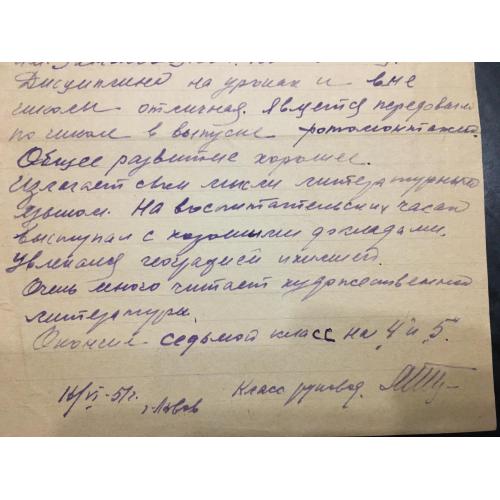 Дисциплина на уроках и вне
школы отличная. Является передовым
по школе в выпуске фотомонтажей.
Общее развитие хорошее.
Излагает свои мысли литературным
языком. На воспитательских часах
выступал с хорошими докладами.
Увлекался географией и химией.
Очень много читает художественной
литературы.
Окончил седьмой класс на "4" и "5".
16/VI-51г.
г. Львов
Класс. руковод.